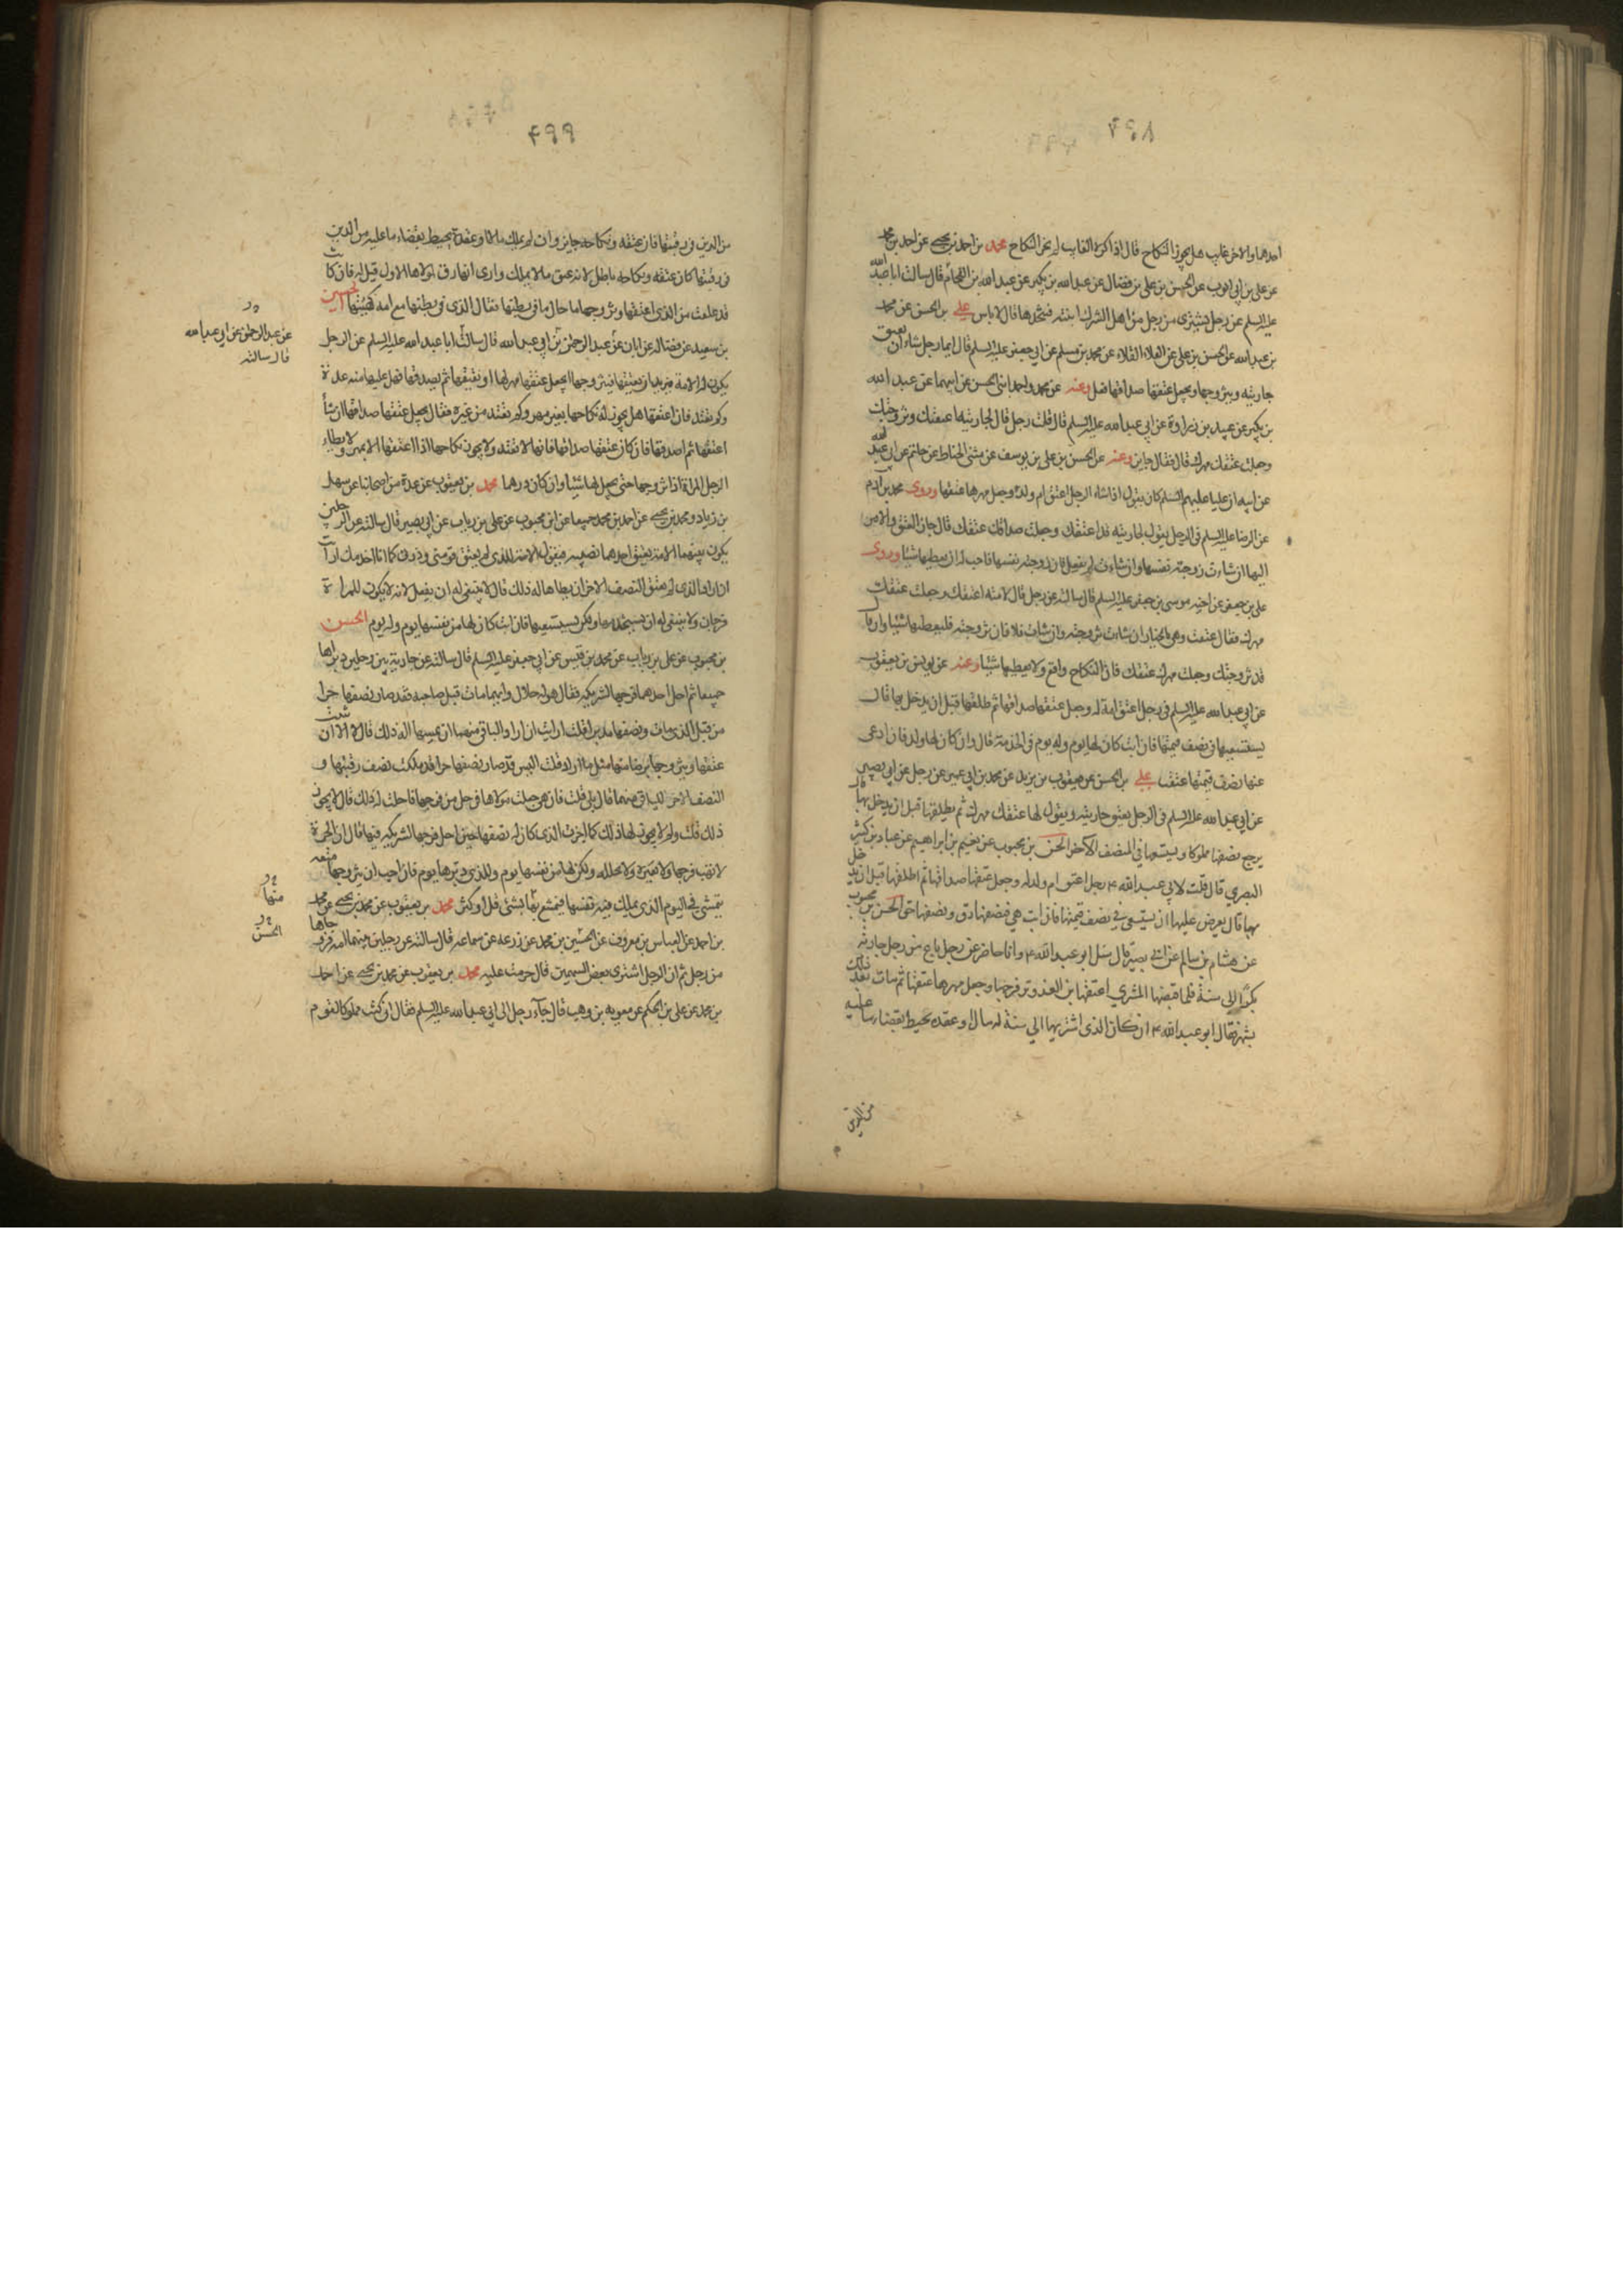 ٨٩٢
احدهما والاخر غايب هل يجوز النكاح قال اذا كره الغايب لم يجز النكاح محمد بن احمد بن يحيى عن احمد بن محمد
عن علي بن ابي ايوب عن الحسن بن علي بن فضال عن عبدالله بن بكير عن عبدالله بن اللحام قال سالت ابا عبد الله
عليه السلم عن رجل يشترى من رجل من اهل الشرك ابنته فيتخذها قال لا باس علي بن الحسن عن محمد
بن عبدالله عن الحسن بن علي عن العلاء القلاء عن محمد بن مسلم عن ابي جعفر عليه السلم قال ايما رجل شاء ان يعتق
جاريته ويتزوجها ويجعل عتقها صداقها فعل وعنه عن محمد واحمد ابني الحسن عن ابيهما عن عبد الله
بن بكير عن عبيد بن زرارة عن ابي عبدالله عليه السلم قال قلت رجل قال لجاريته اعتقتك وتزوجتك
وجعلت عتقك مهرك قال فقال جايز وعنه عن الحسن بن علي بن يوسف عن مثنى الحناط عن حاتم عن ابي عبد الله
عن ابيه ان عليا عليهم السلم كان يقول ان شاء الرجل اعتق ام ولده وجعل مهرها عتقها وروى محمد بن آدم
عن الرضا عليه السلم في الرجل يقول لجاريته قد اعتقتك وجعلت صداقك عتقك قال جاز العتق والامر
اليها ان شاءت زوجته نفسها وان شاءت لم تفعل فان زوجته نفسها فاحب له ان يعطيها شيئا وروى
علي بن جعفر عن اخيه موسى بن جعفر عليه السلم قال سالته عن رجل قال لامته اعتقتك وجعلت عتقك
مهرك فقال عتقت وهي بالخيار ان شاءت تزوجته وان شاءت فلا فان تزوجته فليعطها شيئا وان قال
قد تزوجتك وجعلت مهرك عتقك فان النكاح واقع ولا يعطيها شيئا وعنه عن يونس بن يعقوب
عن ابي عبدالله عليه السلم في رجل اعتق امة له وجعل عتقها صداقها ثم طلقها قبل ان يدخل بها قال
يستسعيها في نصف قيمتها فان ابت كان لها يوم وله يوم في الخدمة قال وان كان لها ولد فان ادى
عنها نصف قيمتها عتقت علي بن الحسن عن يعقوب بن يزيد عن محمد بن ابي عمير عن رجل عن ابي بصير
عن ابي عبدالله عليه السلم في الرجل يعتق جاريته ويقول لها عتقك مهرك ثم يطلقها قبل ان يدخل بها قال
يرجع نصفها مملوكا ويستسعيها في النصف الآخر الحسن بن محبوب عن نعيم بن ابراهيم عن عباد بن كثير
البصري قال قلت لابي عبد الله ع رجل اعتق ام ولد له وجعل عتقها صداقها ثم طلقها قبل ان يدخل
بها قال يعرض عليها ان يستسعى في نصف قيمتها فان ابت هي فنصفها رق ونصفها حر الحسن بن محبوب
عن هشام بن سالم عن ابي بصير قال سئل ابو عبدالله ع وانا حاضر عن رجل باع من رجل جارية
بكرا الى سنة فلما قبضها المشتري اعتقها من الغد وتزوجها وجعل مهرها عتقها ثم مات بعد ذلك
بشهر فقال ابو عبدالله ع ان كان الذى اشتريها الى سنة له مال او عقده تحيط بقضاء ما عليه
من الدين
٤٩٩
من الدين في رقبتها فان عتقه ونكاحه جايز وان لم يملك مالا او عقدة تحيط بقضاء ما عليه من الدين
في رقبتها كان عتقه ونكاحه باطل لانه عتق ما لا يملك وارى انها رق لمولاها الاول قيل له فان كانت
قد علقت من الذى اعتقها وتزوجها ما حال ما في بطنها فقال الذى في بطنها مع امه كهيئتها الحسين
بن سعيد عن فضالة عن ابان عن عبد الرحمن بن ابي عبدالله قال سالت ابا عبدالله عليه السلم عن الرجل
عن عبدالرحمن بن ابي عبدالله
قال سالته
يكون له الامة فيريد ان يعتقها فيتزوجها ايجعل عتقها مهرها او يعتقها ثم يصدقها وهل عليها منه عدة
وكم تعتد فان اعتقها هل يجوز له نكاحها بغير مهر وكم تعتد من غيره فقال يجعل عتقها صداقها ان شاء
اعتقها ثم اصدقها فان كان عتقها صداقها فانها لا تعتد ولا يجوز نكاحها اذا اعتقها الا بمهر ولا يطاء
الرجل المراة اذا تزوجها حتى يجعل لها شيئا وان كان درهما محمد بن يعقوب عن عدة من اصحابنا عن سهل
بن زياد ومحمد بن يحيى عن احمد بن محمد جميعا عن ابن محبوب عن علي بن رياب عن ابي بصير قال سالته عن الرجلين
يكون بينهما الامة فيعتق احدهما نصيبه فتقول الامة للذى لم يعتق قومني وذرني كما انا اخدمك ارايت
ان اراد الذى لم يعتق النصف الاخر ان يطاها اله ذلك قال لا ينبغي له ان يفعل لانه لا يكون للمراة
فرجان ولا ينبغي له ان يستخدمها ولكن يستسعيها فان ابت كان لها من نفسها يوم وله يوم الحسن
بن محبوب عن علي بن رياب عن محمد بن قيس عن ابي جعفر عليه السلم قال سالته عن جارية بين رجلين دبراها
جميعا ثم احل احدهما فرجها لشريكه فقال هو له حلال وايهما مات قبل صاحبه فقد صار نصفها حرا
من قبل الذى مات ونصفها مدبرا قلت ارايت ان اراد الباقي منهما ان يمسها اله ذلك قال لا الا ان يثبت
عتقها ويتزوجها برضا منها مثل ما اراد قلت اليس قد صار نصفها حرا قد ملكت نصف رقبتها و
النصف الآخر للباقي منهما قال بلى قلت فان هي جعلت مولاها في حل من فرجها فاحلت له ذلك قال لا يجوز
ذلك قلت ولم لا يجوز لها ذلك كما اجزت الذى كان له نصفها حين احل فرجها لشريكه فيها قال ان الحرة
لا تهب فرجها ولا تعيره ولا تحلله ولكن لها من نفسها يوم وللذى دبرها يوم فان احب ان يتزوجها متعه
بشئ في اليوم الذى يملك فيه نفسها فيتمتع بها بشئ قل او كثر محمد بن يعقوب عن محمد بن يحيى عن محمد
منها
بن احمد عن العباس بن معروف عن الحسين بن محمد عن زرعه عن سماعه قال سالته عن رجلين بينهما امة فزوجاها
الحسن
من رجل ثم ان الرجل اشترى بعض السهمين قال حرمت عليه محمد بن يعقوب عن محمد بن يحيى عن احمد
بن محمد عن علي بن الحكم عن معويه بن وهب قال جآء رجل الى ابي عبدالله عليه السلم فقال اني كنت مملوكا لقوم